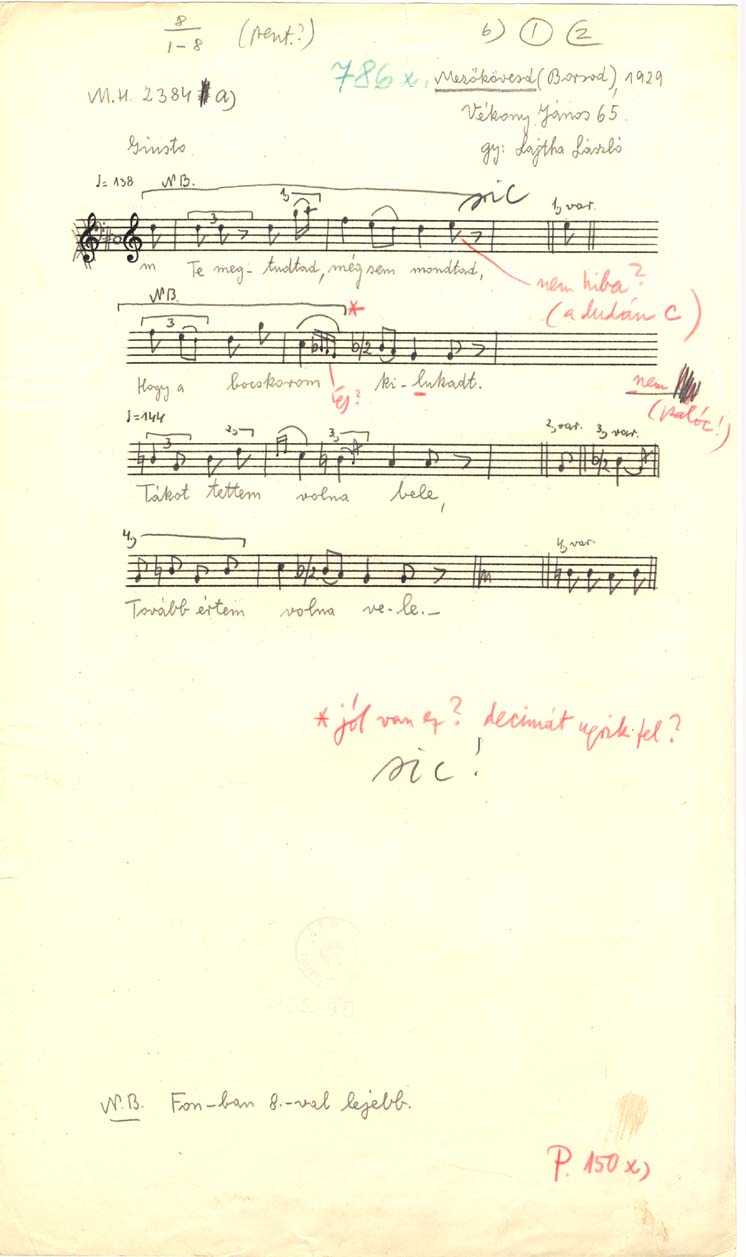 8/1-8 (pent.?) b) 1 2
786 x. Mezőkövesd (Borsod), 1929
M.H. 2384 a)
Vékony János 65.
Giusto
gy: Lajtha László
♩= 138 N.B. 1, sic 1, var.
Te meg-tudtad, mégsem mondtad,
nem hiba?
(a dudán C)
N.B. 3 *
Hogy a bocskorom ki-lukadt.
nem
(palóc!)
♩=144 3 2, 3, 2, var. 3, var.
Tákot tettem volna bele,
4, 4, var.
Tovább értem volna ve-le.-
* jól van ez? decimát ugrik fel?
sic!
N.B. Fon-ban 8.-val lejebb.
P. 150 x)